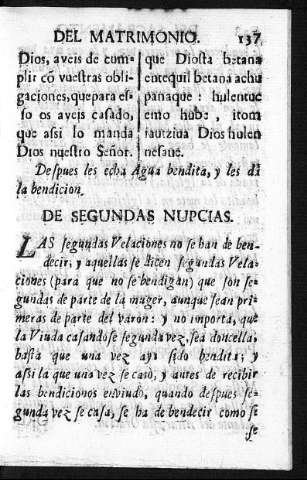 DEL MATRIMONIO. 137
Dios, aveis de cum-
plir cõ vuestras obli-
gaciones, quepara es-
so os aveis casado,
que assi lo manda
Dios nuestro Señor.
que Diosta betana
entequil betana achu
panaque: hulentuc
emo hube, itom
iautziua Dios hulen
nesaue.
Despues les echa Agua bendita, y les dà
la bendicion.
DE SEGUNDAS NUPCIAS.
LAS segundas Velaciones no se han de ben-
decir, y aquellas se dicen segundas Vela-
ciones (para que no se bendigan) que son se-
gundas de parte de la muger, aunque sean pri-
meras de parte del varon: y no importa, que
la Viuda casandose segunda vez, sea doncella,
basta que una vez aya sido bendita; y
assi la que una vez se casò, y antes de recibir
las bendiciones enviudò, quando despues se-
gunda vez se casa, se ha de bendecir como si
se